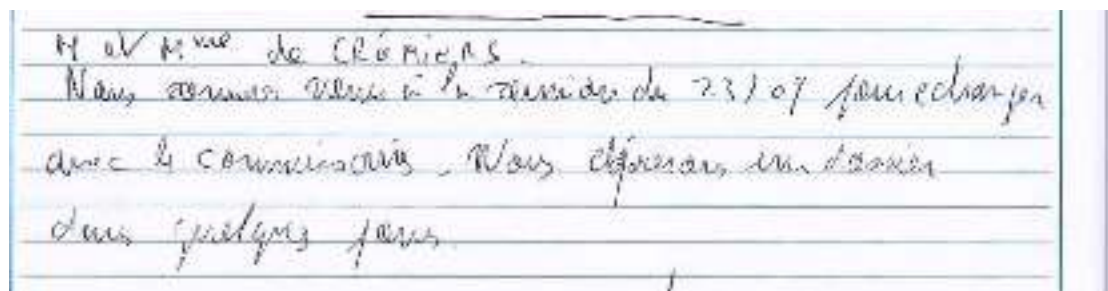 M et Mme de CRÉMIERS.
Nous sommes venus à la réunion du 23/07 pour echanger
avec le commissaire. Nous déposerons un dossier
dans quelques jours.